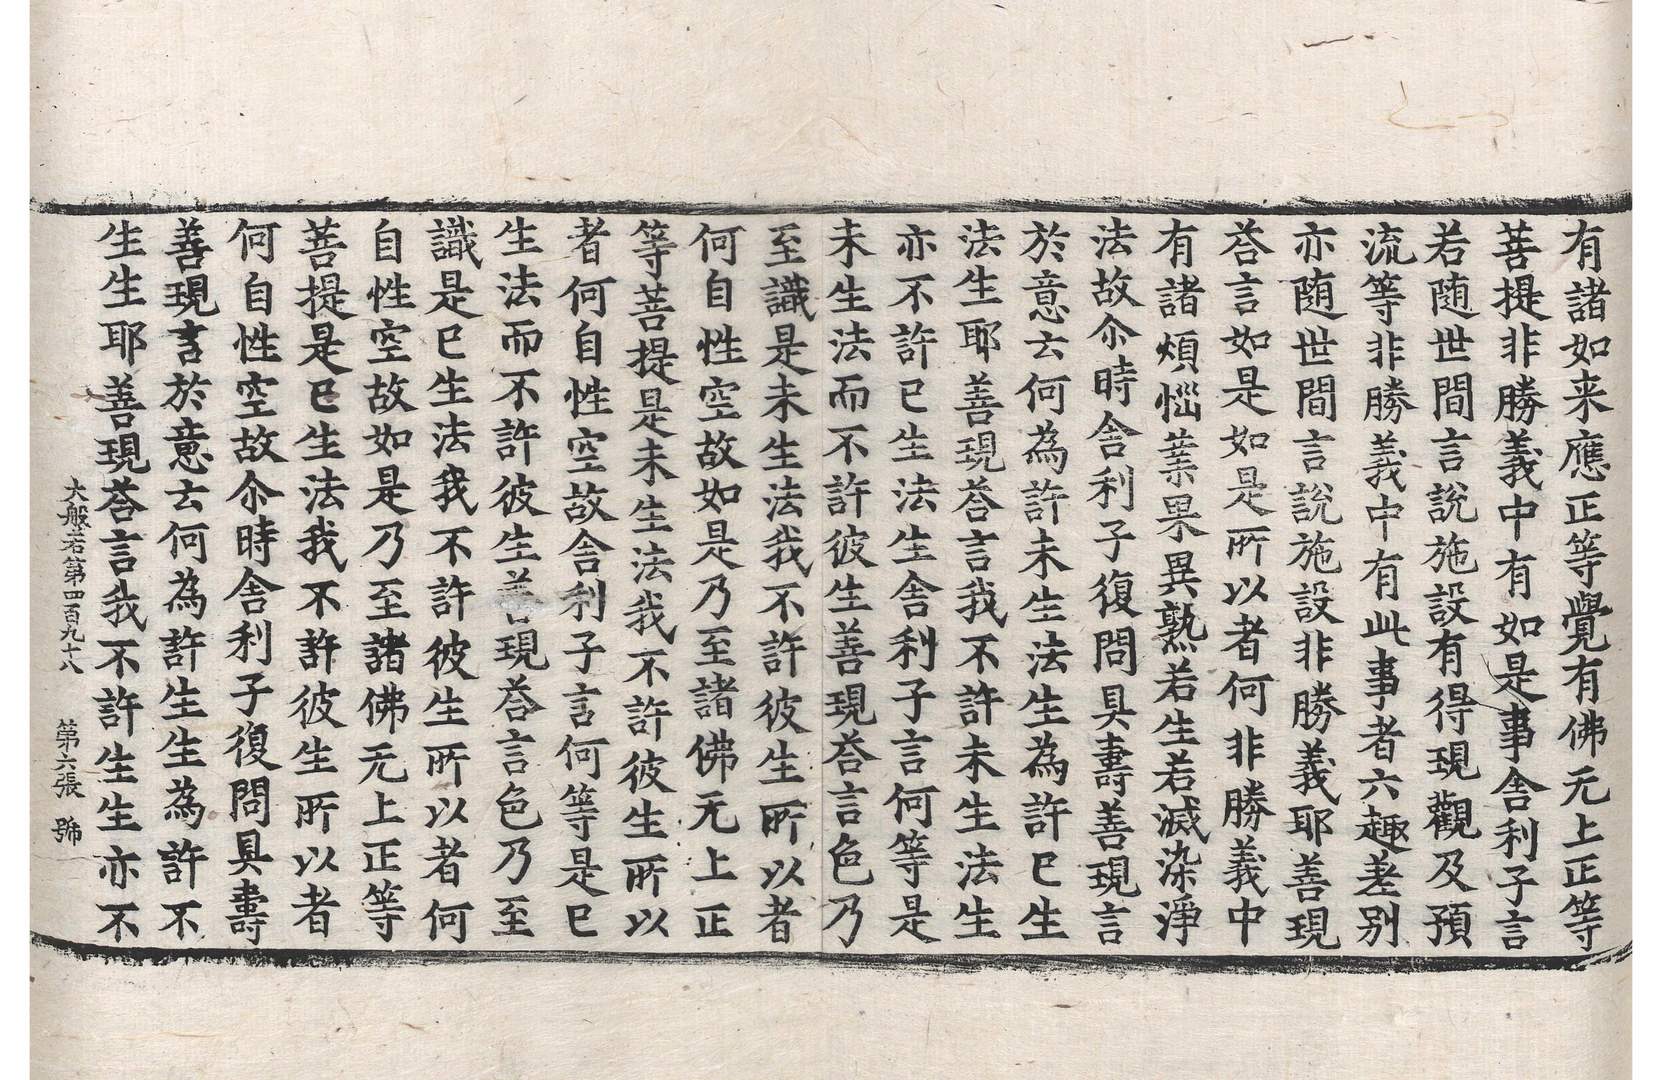 有諸如来應正等覺有佛无上正等
菩提非勝義中有如是事舍利子言
若随世間言說施設有得現觀及預
流等非勝義中有此事者六趣差别
亦随世間言說施設非勝義耶善現
荅言如是如是所以者何非勝義中
有諸煩惱業果異熟若生若滅染淨
法故尒時舍利子復問具壽善現言
於意云何為許未生法生為許已生
法生耶善現荅言我不許未生法生
亦不許已生法生舍利子言何等是
未生法而不許彼生善現荅言色乃
至識是未生法我不許彼生所以者
何自性空故如是乃至諸佛无上正
等菩提是未生法我不許彼生所以
者何自性空故舍利子言何等是已
生法而不許彼生善現荅言色乃至
識是已生法我不許彼生所以者何
自性空故如是乃至諸佛无上正等
菩提是已生法我不許彼生所以者
何自性空故尒時舍利子復問具壽
善現言於意云何為許生生為許不
生生耶善現荅言我不許生生亦不
大般若第四百九十八 第六張 號